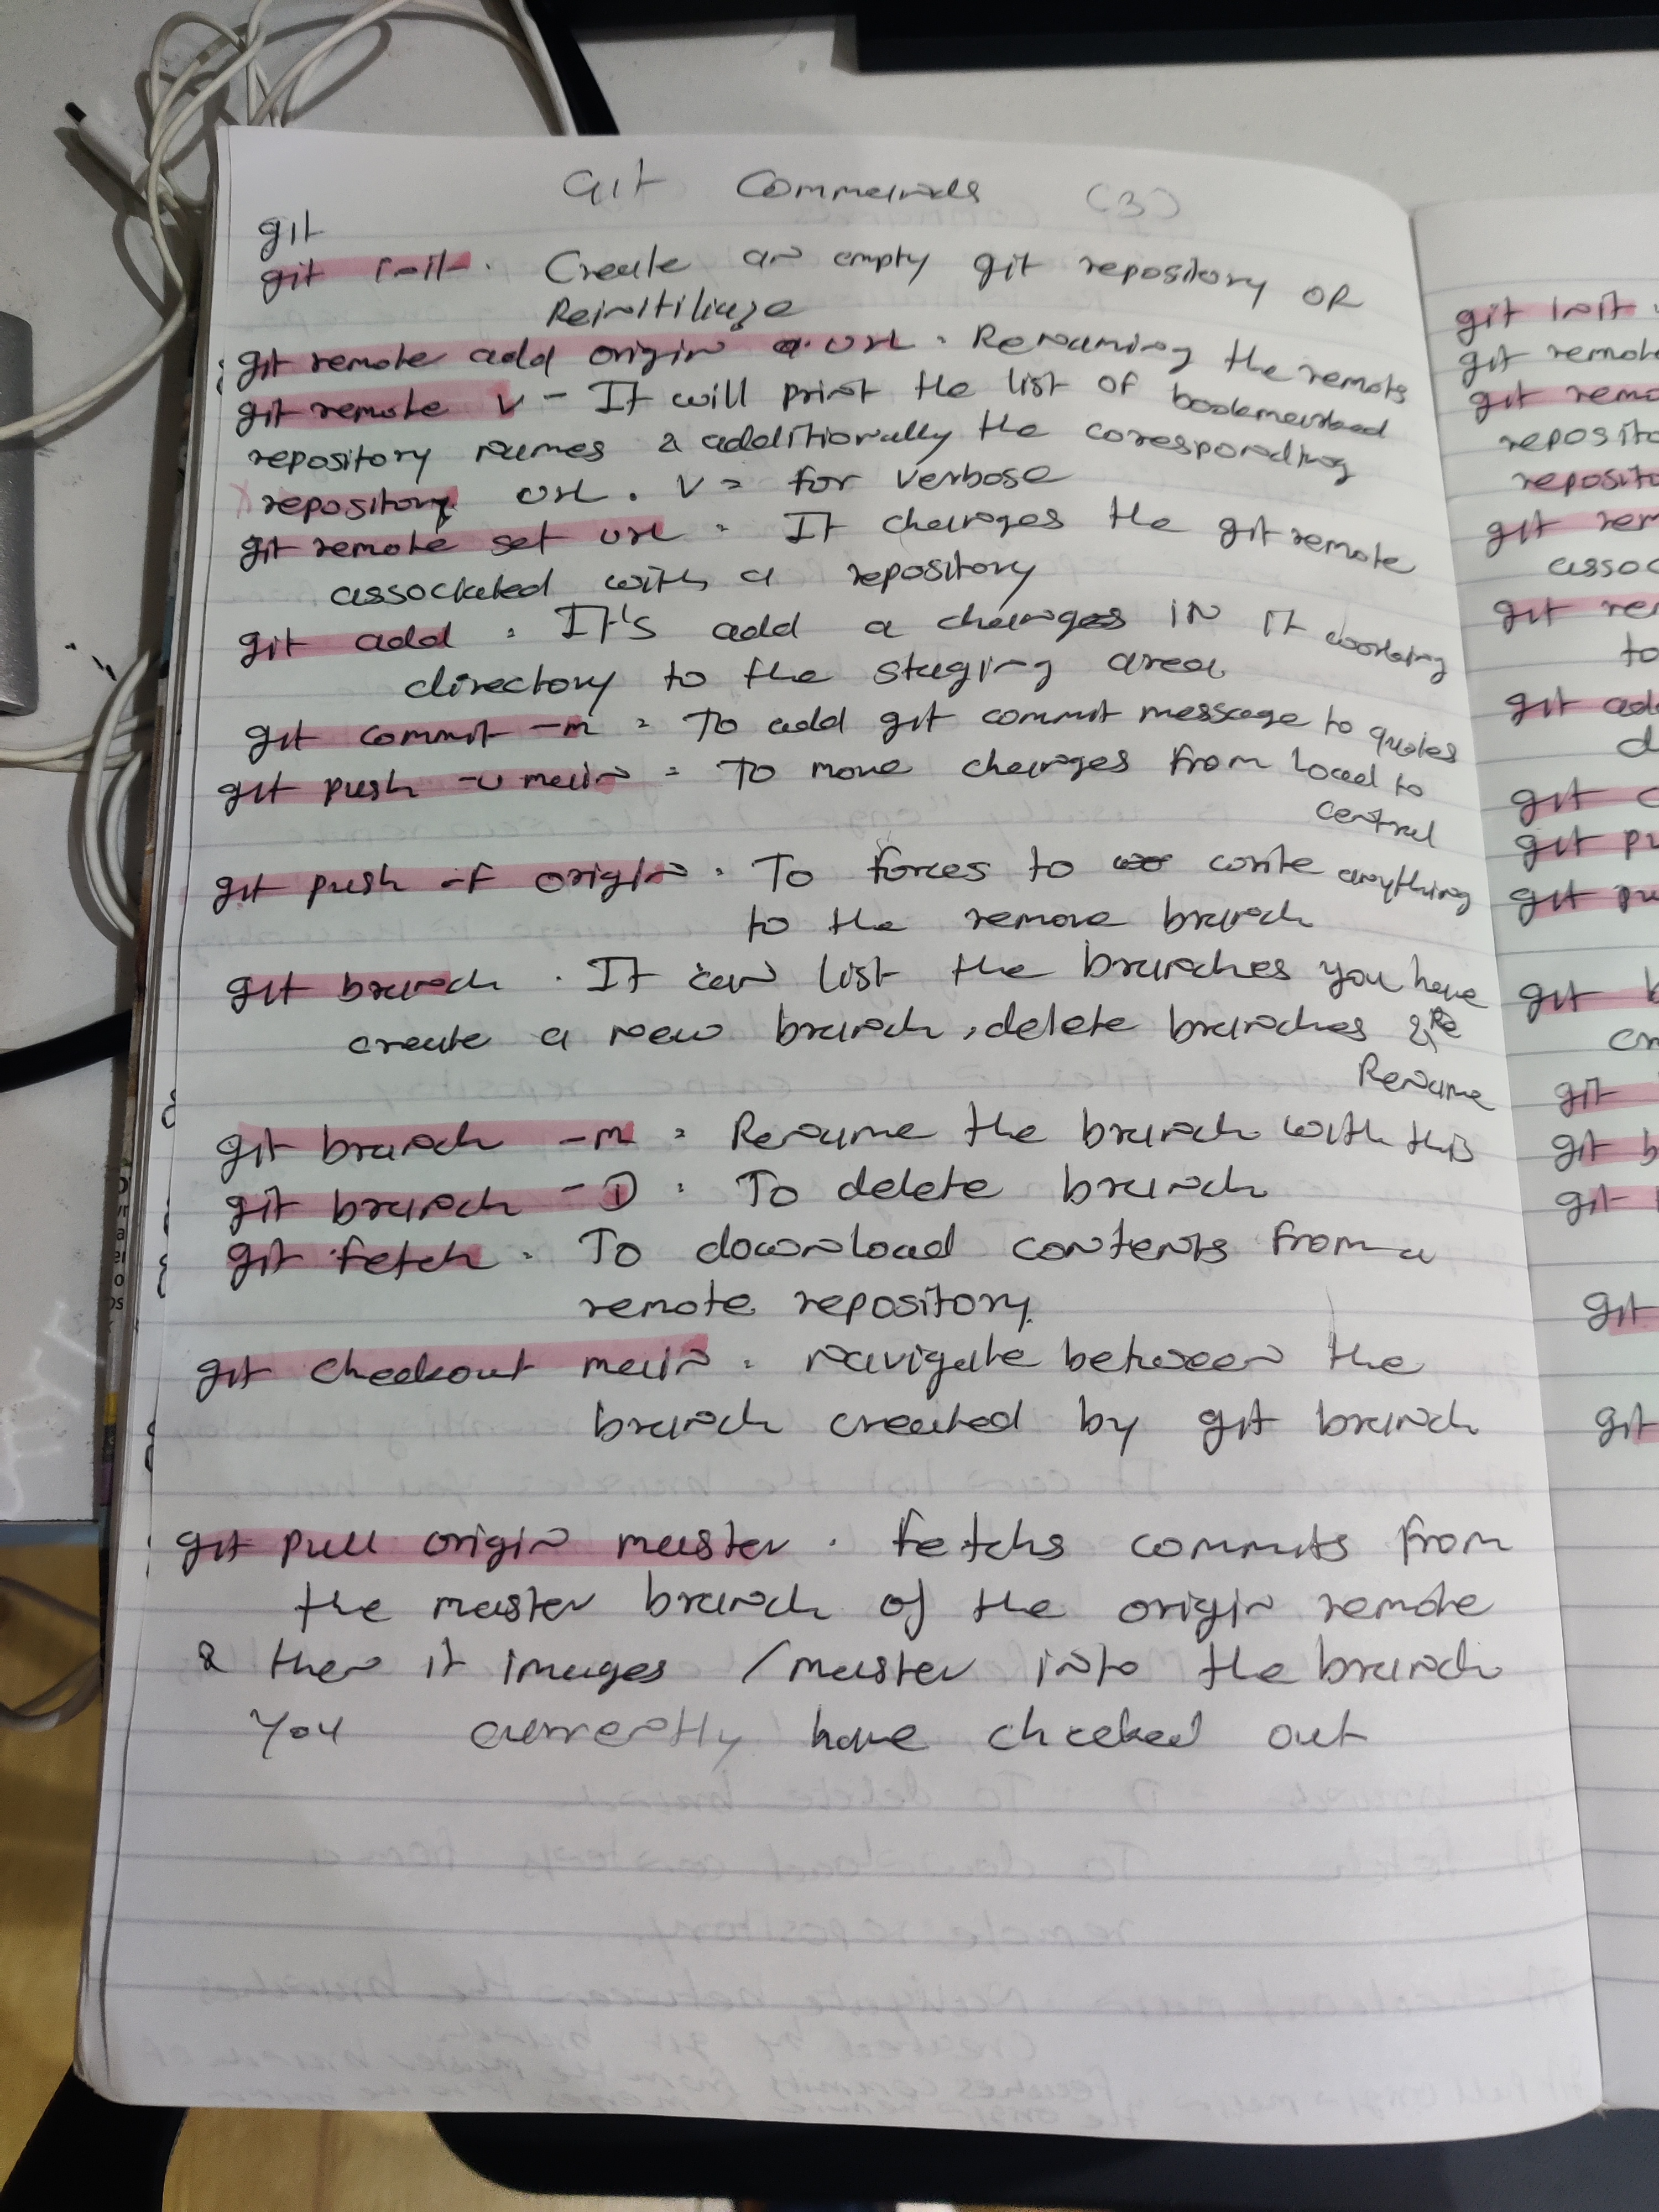 Git Commands (3)
git
git init. Create an empty git repository OR
Reinitiliaze
git remote add origin url. Renaming the remote
git remote v - It will print the list of bookmarked
repository names & additionally the coresponding
repository url. v = for verbose
git remote set url = It changes the git remote
associated with a repository
git add = It's add a changes in it working
directory to the staging area
git commit -m = To add git commit message to quotes
git push -u main = To move changes from local to
central
git push -f origin. To forces to write anything
to the remove branch
git branch. It can list the branches you have
create a new branch, delete branches & Re
Rename
git branch -m = Rename the branch with this
git branch -D = To delete branch
git fetch = To download contents from a
remote repository
git checkout main = navigate between the
branch created by git branch
git pull origin master. Fetchs commits from
the master branch of the origin remote
& then it images /master into the branch
You currently have checked out
git init
git remote
git remo
reposito
reposito
git rem
assoc
git re
to
git add
d
git c
git pu
git pu
git b
cr
git
git b
git
git
git